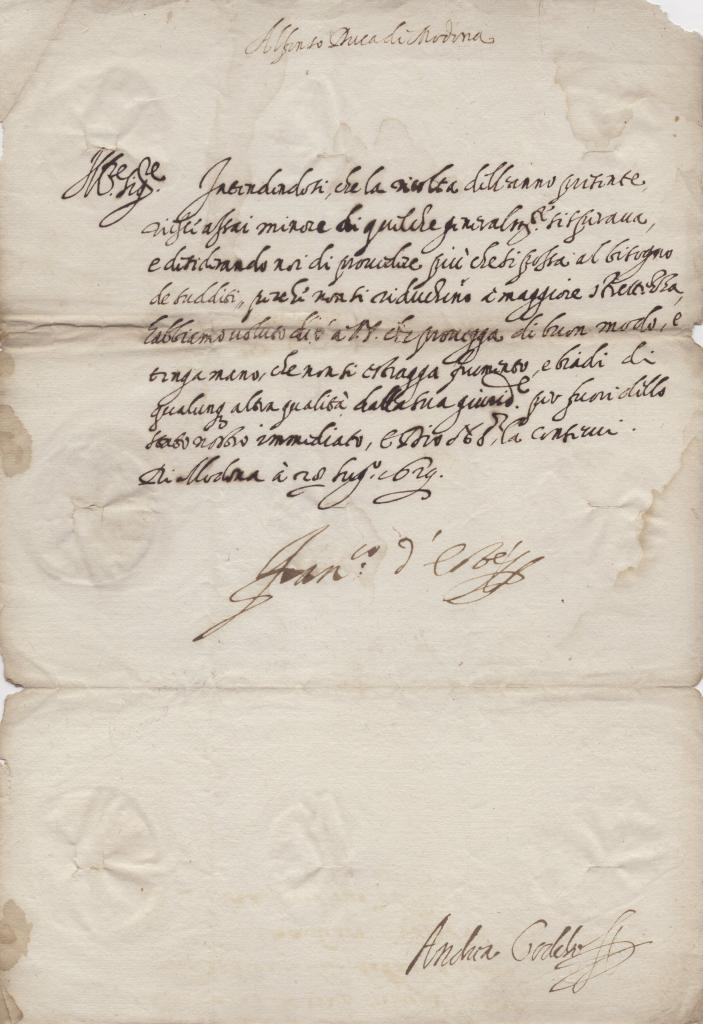 Alfonso Duca di Modona
Ill.re Sig.re Intendendosi, che la ricolta dell'anno presente,
riesce assai minore di quel che generalm.te si sperava,
e desiderando noi di provedere più che si possa al bisogno
de sudditi, perché non si riduchino à maggiore strettezza,
habbiamo voluto dir à V.S. che provegga di buon modo, e
tenga mano, che non si estragga frumento, e biadi di
qualunq altra qualità dalla sua giurisd.e per fuori dello
stato nostro immediato, e Dio la conservi.
Di Modona à 28 lug.o 1629.
Fran.co d'Este
Andrea